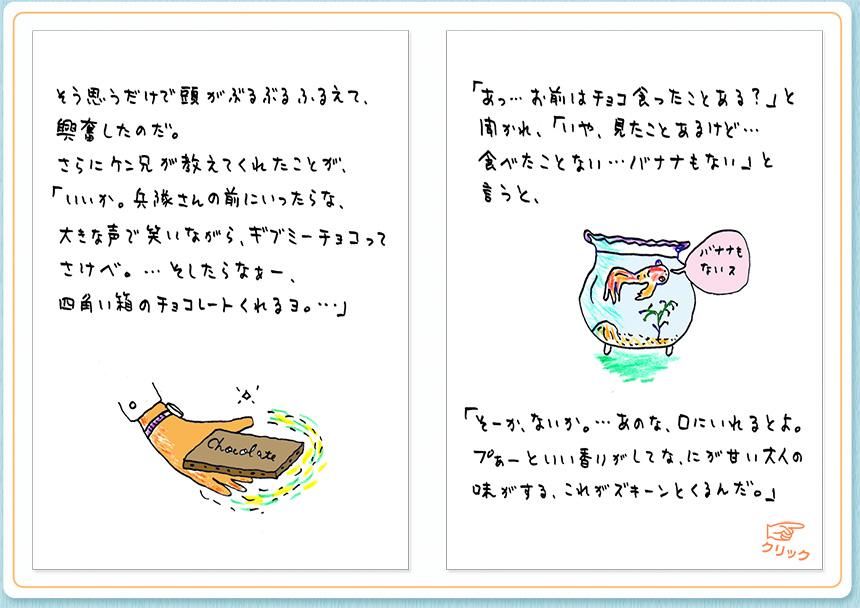 そう思うだけで頭がぶるぶるふるえて、
興奮したのだ。
さらにケン兄が教えてくれたことが、
「いいか。兵隊さんの前にいったらな、
大きな声で笑いながら、ギブミーチョコって
さけべ。…そしたらなぁー、
四角い箱のチョコレートくれるヨ。…」
Chocolate
「あっ…お前はチョコ食ったことある？」と
聞かれ、「いや、見たことあるけど…
食べたことない…バナナもない」と
言うと、
バナナも
ないス
「そーか、ないか。…あのな、口にいれるとよ。
プぁーといい香りがしてな、にが甘い大人の
味がする、これがズキーンとくるんだ。」
クリック